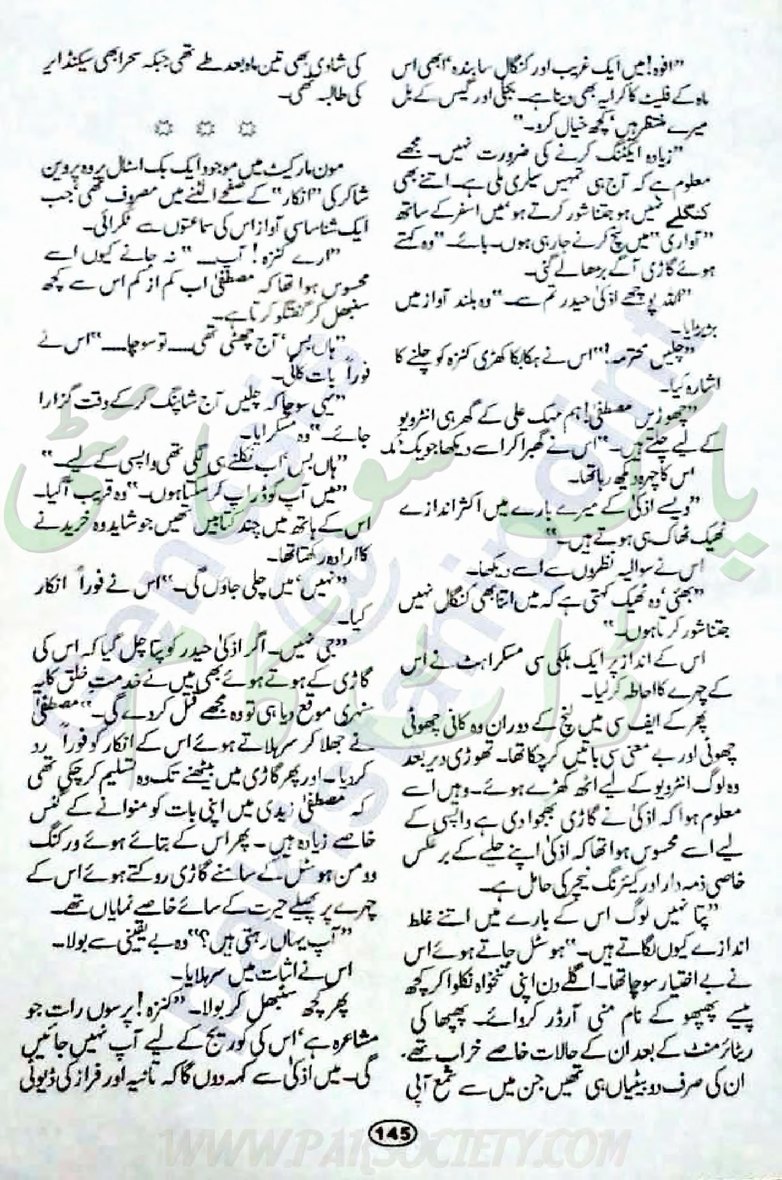 ”افوہ! میں ایک غریب اور کنگال سا بندہ‘ ابھی اس
ماہ کے فلیٹ کا کرایہ بھی دینا ہے۔ بجلی اور گیس کے بل
میرے منتظر ہیں‘ کچھ خیال کرو۔“
”زیادہ ایکٹنگ کرنے کی ضرورت نہیں۔ مجھے
معلوم ہے کہ آج ہی تمہیں سیلری ملی ہے۔ اتنے بھی
کنگلے نہیں ہو جتنا شور کرتے ہو‘ میں اسفر کے ساتھ
”آواری“ میں لنچ کرنے جا رہی ہوں۔ بائے۔“ وہ کہتے
ہوئے گاڑی آگے بڑھا لے گئی۔
”اللہ پوچھے اذکیٰ حیدر تم سے۔“ وہ بلند آواز میں
بڑبڑایا۔
”چلیں محترمہ!“ اس نے ہکا بکا کھڑی کنزہ کو چلنے کا
اشارہ کیا۔
”چھوڑیں مصطفیٰ! ہم مہک علی کے گھر ہی انٹرویو
کے لیے چلتے ہیں۔“ اس نے گھبرا کر اسے دیکھا جو یک ٹک
اس کا چہرہ دیکھ رہا تھا۔
”ویسے اذکیٰ کے میرے بارے میں اکثر اندازے
ٹھیک ٹھاک ہی ہوتے ہیں۔“
اس نے سوالیہ نظروں سے اسے دیکھا۔
”بھئی‘ وہ ٹھیک کہتی ہے کہ میں اتنا بھی کنگال نہیں
جتنا شور کرتا ہوں۔“
اس کے انداز پر ایک ہلکی سی مسکراہٹ نے اس
کے چہرے کا احاطہ کر لیا۔
پھر کے ایف سی میں لنچ کے دوران وہ کافی چھوٹی
چھوٹی اور بے معنی سی باتیں کر چکا تھا۔ تھوڑی دیر بعد
وہ لوگ انٹرویو کے لیے اٹھ کھڑے ہوئے۔ وہیں اسے
معلوم ہوا کہ اذکیٰ نے گاڑی بھجوا دی ہے واپسی کے
لیے اسے محسوس ہوا تھا کہ اذکیٰ اپنے حلیے کے برعکس
خاصی ذمہ دار اور کیئرنگ نیچر کی حامل ہے۔
”پتا نہیں لوگ اس کے بارے میں اتنے غلط
اندازے کیوں لگاتے ہیں۔“ ہوسٹل جاتے ہوئے اس
نے بے اختیار سوچا تھا۔ اگلے دن اپنی تنخواہ نکلوا کر کچھ
پیسے پھپھو کے نام منی آرڈر کروائے۔ پھپھا کی
ریٹائرمنٹ کے بعد ان کے حالات خاصے خراب تھے۔
ان کی صرف دو بیٹیاں ہی تھیں جن میں سے شمع آپی
کی شادی بھی تین ماہ بعد طے تھی جبکہ سحر ابھی سیکنڈ ایر
کی طالبہ تھی۔
☼ ☼ ☼
مون مارکیٹ میں موجود ایک بک اسٹال پر وہ پروین
شاکر کی ”انکار“ کے صفحے الٹنے میں مصروف تھی‘ جب
ایک شناسا سی آواز اس کی سماعتوں سے ٹکرائی۔
”ارے کنزہ! آپ۔۔۔“ نہ جانے کیوں اسے
محسوس ہوا تھا کہ مصطفیٰ اب کم از کم اس سے کچھ
سنبھل کر گفتگو کرتا ہے۔
”ہاں بس‘ آج چھٹی تھی۔۔۔ تو سوچا۔۔۔“ اس نے
فوراً بات کاٹی۔
”یہی سوچا کہ چلیں آج شاپنگ کر کے وقت گزارا
جائے۔“ وہ مسکرایا۔
”ہاں بس‘ اب نکلنے ہی لگی تھی واپسی کے لیے۔“
”میں آپ کو ڈراپ کر سکتا ہوں۔“ وہ قریب آ گیا۔
اس کے ہاتھ میں چند کتابیں تھیں جو شاید وہ خریدنے
کا ارادہ رکھتا تھا۔
”نہیں‘ میں چلی جاؤں گی۔“ اس نے فوراً انکار
کیا۔
”جی نہیں۔ اگر اذکیٰ حیدر کو پتا چل گیا کہ اس کی
گاڑی کے ہوتے ہوئے بھی میں نے خدمت خلق کا یہ
سنہری موقع گنوا دیا ہی تو وہ مجھے قتل کر دے گی۔“ مصطفیٰ
نے جھلا کر سر ہلاتے ہوئے اس کے انکار کو فوراً رد
کر دیا۔ اور پھر گاڑی میں بیٹھنے تک وہ تسلیم کر چکی تھی
کہ مصطفیٰ زیدی میں اپنی بات کو منوانے کے گٹس
خاصے زیادہ ہیں۔ پھر اس کے بتائے ہوئے ورکنگ
وومن ہوسٹل کے سامنے گاڑی روکتے ہوئے اس کے
چہرے پر پھیلے حیرت کے سائے خاصے نمایاں تھے۔
”آپ یہاں رہتی ہیں؟“ وہ بے یقینی سے بولا۔
اس نے اثبات میں سر ہلایا۔
پھر کچھ سنبھل کر بولا۔ ”کنزہ! پرسوں رات جو
مشاعرہ ہے‘ اس کی کوریج کے لیے آپ نہیں جائیں
گی۔ میں اذکیٰ سے کہہ دوں گا کہ تانیہ اور فراز کی ڈیوٹی
145
WWW.PAKSOCIETY.COM
پاک سوسائٹی
ڈاٹ کام